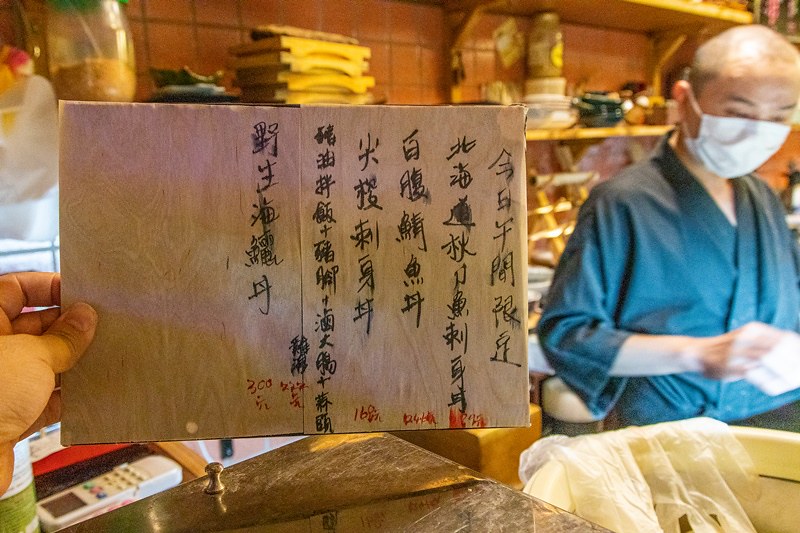 今日午間限定
北海道秋刀魚刺身丼
白腹鯖魚丼
尖梭刺身丼
168元
豬油拌飯+豬腳+滷大腸+
野生海鱺丼
300元